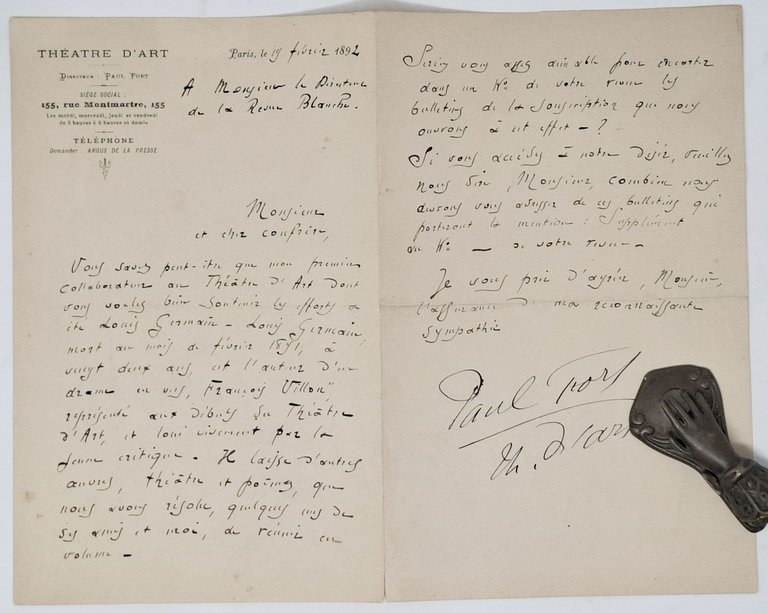 THÉATRE D'ART
DIRECTEUR : PAUL FORT
SIÈGE SOCIAL :
155, rue Montmartre, 155
Les mardi, mercredi, jeudi et vendredi
de 5 heures à 6 heures et demie
TÉLÉPHONE
Demander : ARGUS DE LA PRESSE
Paris, le 19 février 1892
A Monsieur le Directeur
de la Revue Blanche.
Monsieur
et cher confrère,
Vous savez peut-être que mon premier
collaborateur au Théâtre d'Art dont
vous voulez bien soutenir les efforts a
été Louis Germain - Louis Germain,
mort au mois de février 1891, à
vingt deux ans, est l'auteur d'un
drame en vers, François Villon"
représenté aux débuts du Théâtre
d'Art, et loué vivement par la
jeune critique - Il laisse d'autres
œuvres, théâtre et poèmes, que
nous avons résolu, quelques uns de
ses amis et moi, de réunir en
volume -
Seriez vous assez aimable pour encarter
dans un No de votre revue les
bulletins de la souscription que nous
ouvrons à cet effet - ?
Si vous accédez à notre désir, veuillez
nous dire, Monsieur, combien nous
devrons vous adresser de ces bulletins qui
porteront la mention : Supplément
au No — de votre revue -
Je vous prie d'agréer, Monsieur,
l'assurance de ma reconnaissante
sympathie
Paul Fort
Th. d'art